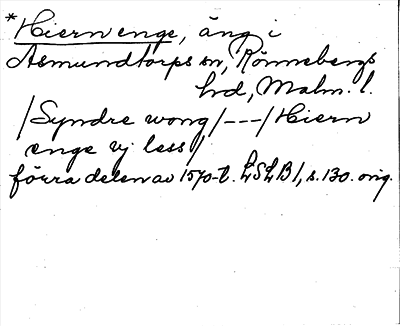 *Hiern enge, äng i
Asmundtorps sn, Rönnebergs
hd, Malm. l.
/Syndre wong/---/Hiern
enge vj less/
förra delen av 1570-t. LSLB1, s. 130. orig.